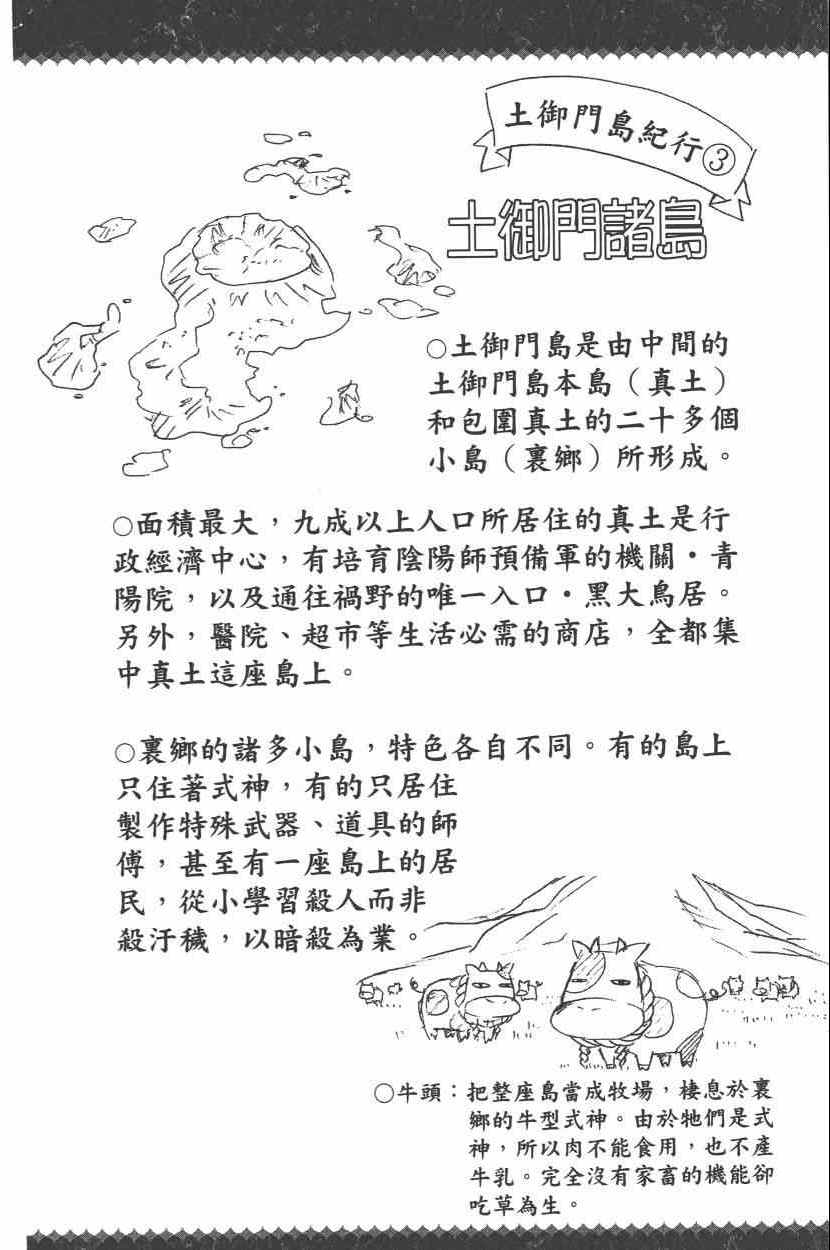 土御門島紀行③
土御門諸島
○土御門島是由中間的
土御門島本島（真土）
和包圍真土的二十多個
小島（裏鄉）所形成。
○面積最大，九成以上人口所居住的真土是行
政經濟中心，有培育陰陽師預備軍的機關・青
陽院，以及通往禍野的唯一入口・黑大鳥居。
另外，醫院、超市等生活必需的商店，全都集
中真土這座島上。
○裏鄉的諸多小島，特色各自不同。有的島上
只住著式神，有的只居住
製作特殊武器、道具的師
傅，甚至有一座島上的居
民，從小學習殺人而非
殺汙穢，以暗殺為業。
○牛頭：把整座島當成牧場，棲息於裏
鄉的牛型式神。由於牠們是式
神，所以肉不能食用，也不產
牛乳。完全沒有家畜的機能卻
吃草為生。